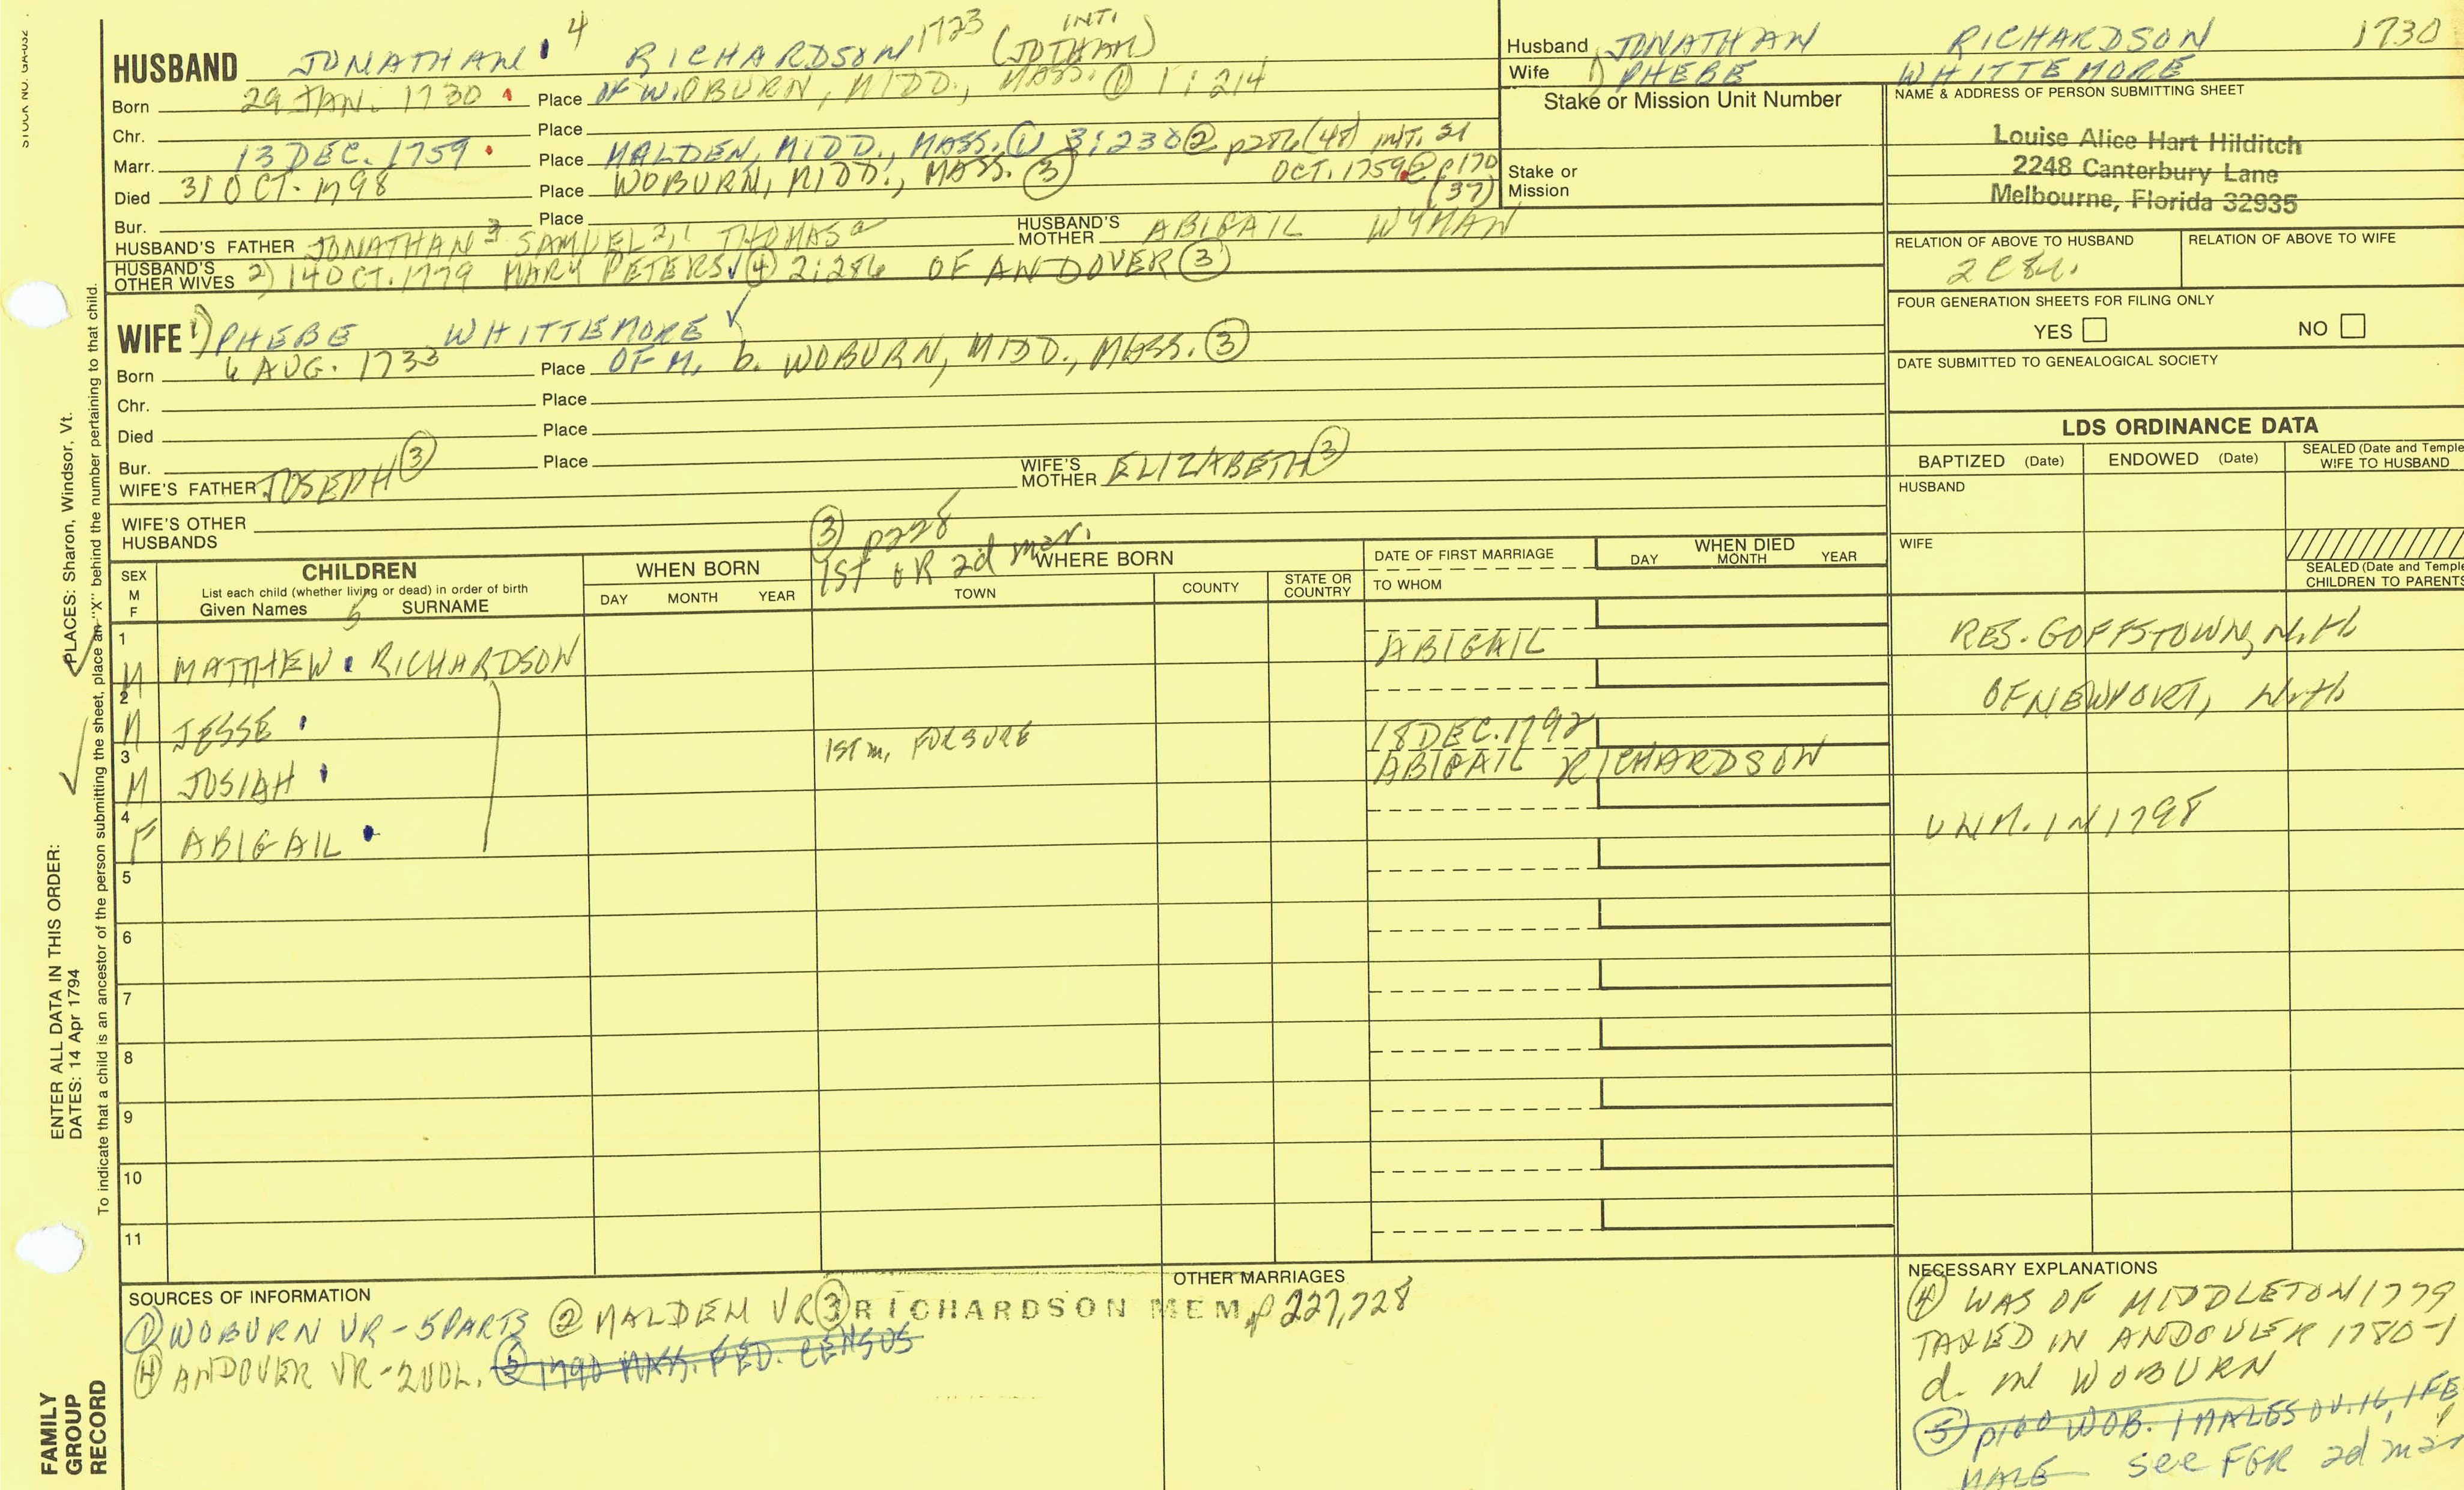 STOCK NO. GA-032
HUSBAND JONATHAN 4 RICHARDSON 1723 (JOTHAM) INT.
Born 29 JAN. 1730 Place OF WOBURN, MIDD., MASS. ① 1:214
Chr. Place
Marr. 13 DEC. 1759 Place MALDEN, MIDD., MASS. ① 3:230 ② p286 (48) INT. 21 OCT. 1759 ② p170 (37)
Died 31 OCT. 1798 Place WOBURN, MIDD., MASS. ③
Bur. Place
HUSBAND'S FATHER JONATHAN 3 SAMUEL 2,1 THOMAS a HUSBAND'S MOTHER ABIGAIL WYMAN
HUSBAND'S OTHER WIVES 2) 14 OCT. 1779 MARY PETERS ④ 2:286 OF ANDOVER ③
WIFE 1) PHEBE WHITTEMORE
Born 6 AUG. 1733 Place OF M. b. WOBURN, MIDD., MASS. ③
Chr. Place
Died Place
Bur. Place
WIFE'S FATHER JOSEPH ③ WIFE'S MOTHER ELIZABETH ③
WIFE'S OTHER HUSBANDS
Husband JONATHAN RICHARDSON 1730
Wife 1) PHEBE WHITTEMORE
Stake or Mission Unit Number
Stake or Mission
NAME & ADDRESS OF PERSON SUBMITTING SHEET
Louise Alice Hart Hilditch
2248 Canterbury Lane
Melbourne, Florida 32935
RELATION OF ABOVE TO HUSBAND RELATION OF ABOVE TO WIFE
FOUR GENERATION SHEETS FOR FILING ONLY
YES NO
DATE SUBMITTED TO GENEALOGICAL SOCIETY
LDS ORDINANCE DATA
BAPTIZED (Date) ENDOWED (Date) SEALED (Date and Temple WIFE TO HUSBAND
HUSBAND
WIFE
SEALED (Date and Temple
CHILDREN TO PARENTS
③ p228
1ST OR 2d mar.
SEX M F CHILDREN WHEN BORN WHERE BORN DATE OF FIRST MARRIAGE WHEN DIED
List each child (whether living or dead) in order of birth
Given Names SURNAME DAY MONTH YEAR TOWN COUNTY STATE OR COUNTRY TO WHOM DAY MONTH YEAR
5
1 M MATTHEW RICHARDSON ABIGAIL RES. GOFFSTOWN, N.H.
2 M JESSE OF NEWPORT, N.H.
3 M JOSIAH 1ST m. FOR SURE 18 DEC. 1792 ABIGAIL RICHARDSON
4 F ABIGAIL UNM. IN 1798
5
6
7
8
9
10
11
SOURCES OF INFORMATION
① WOBURN VR-5 PARTS ② MALDEN VR ③ RICHARDSON MEM. p 227, 228
④ ANDOVER VR-2 VOL. ⑤ 1790 MASS. FED. CENSUS
OTHER MARRIAGES
NECESSARY EXPLANATIONS
④ WAS OF MIDDLETON 1779
TAXED IN ANDOVER 1780-1
d. IN WOBURN
⑤ p160 WOB. 1 MALES OV. 16, 1 FE
MALE see FGR 2d mar
PLACES: Sharon, Windsor, Vt.
ENTER ALL DATA IN THIS ORDER:
DATES: 14 Apr 1794
To indicate that a child is an ancestor of the person submitting the sheet, place an "X" behind the number pertaining to that child.
FAMILY
GROUP
RECORD